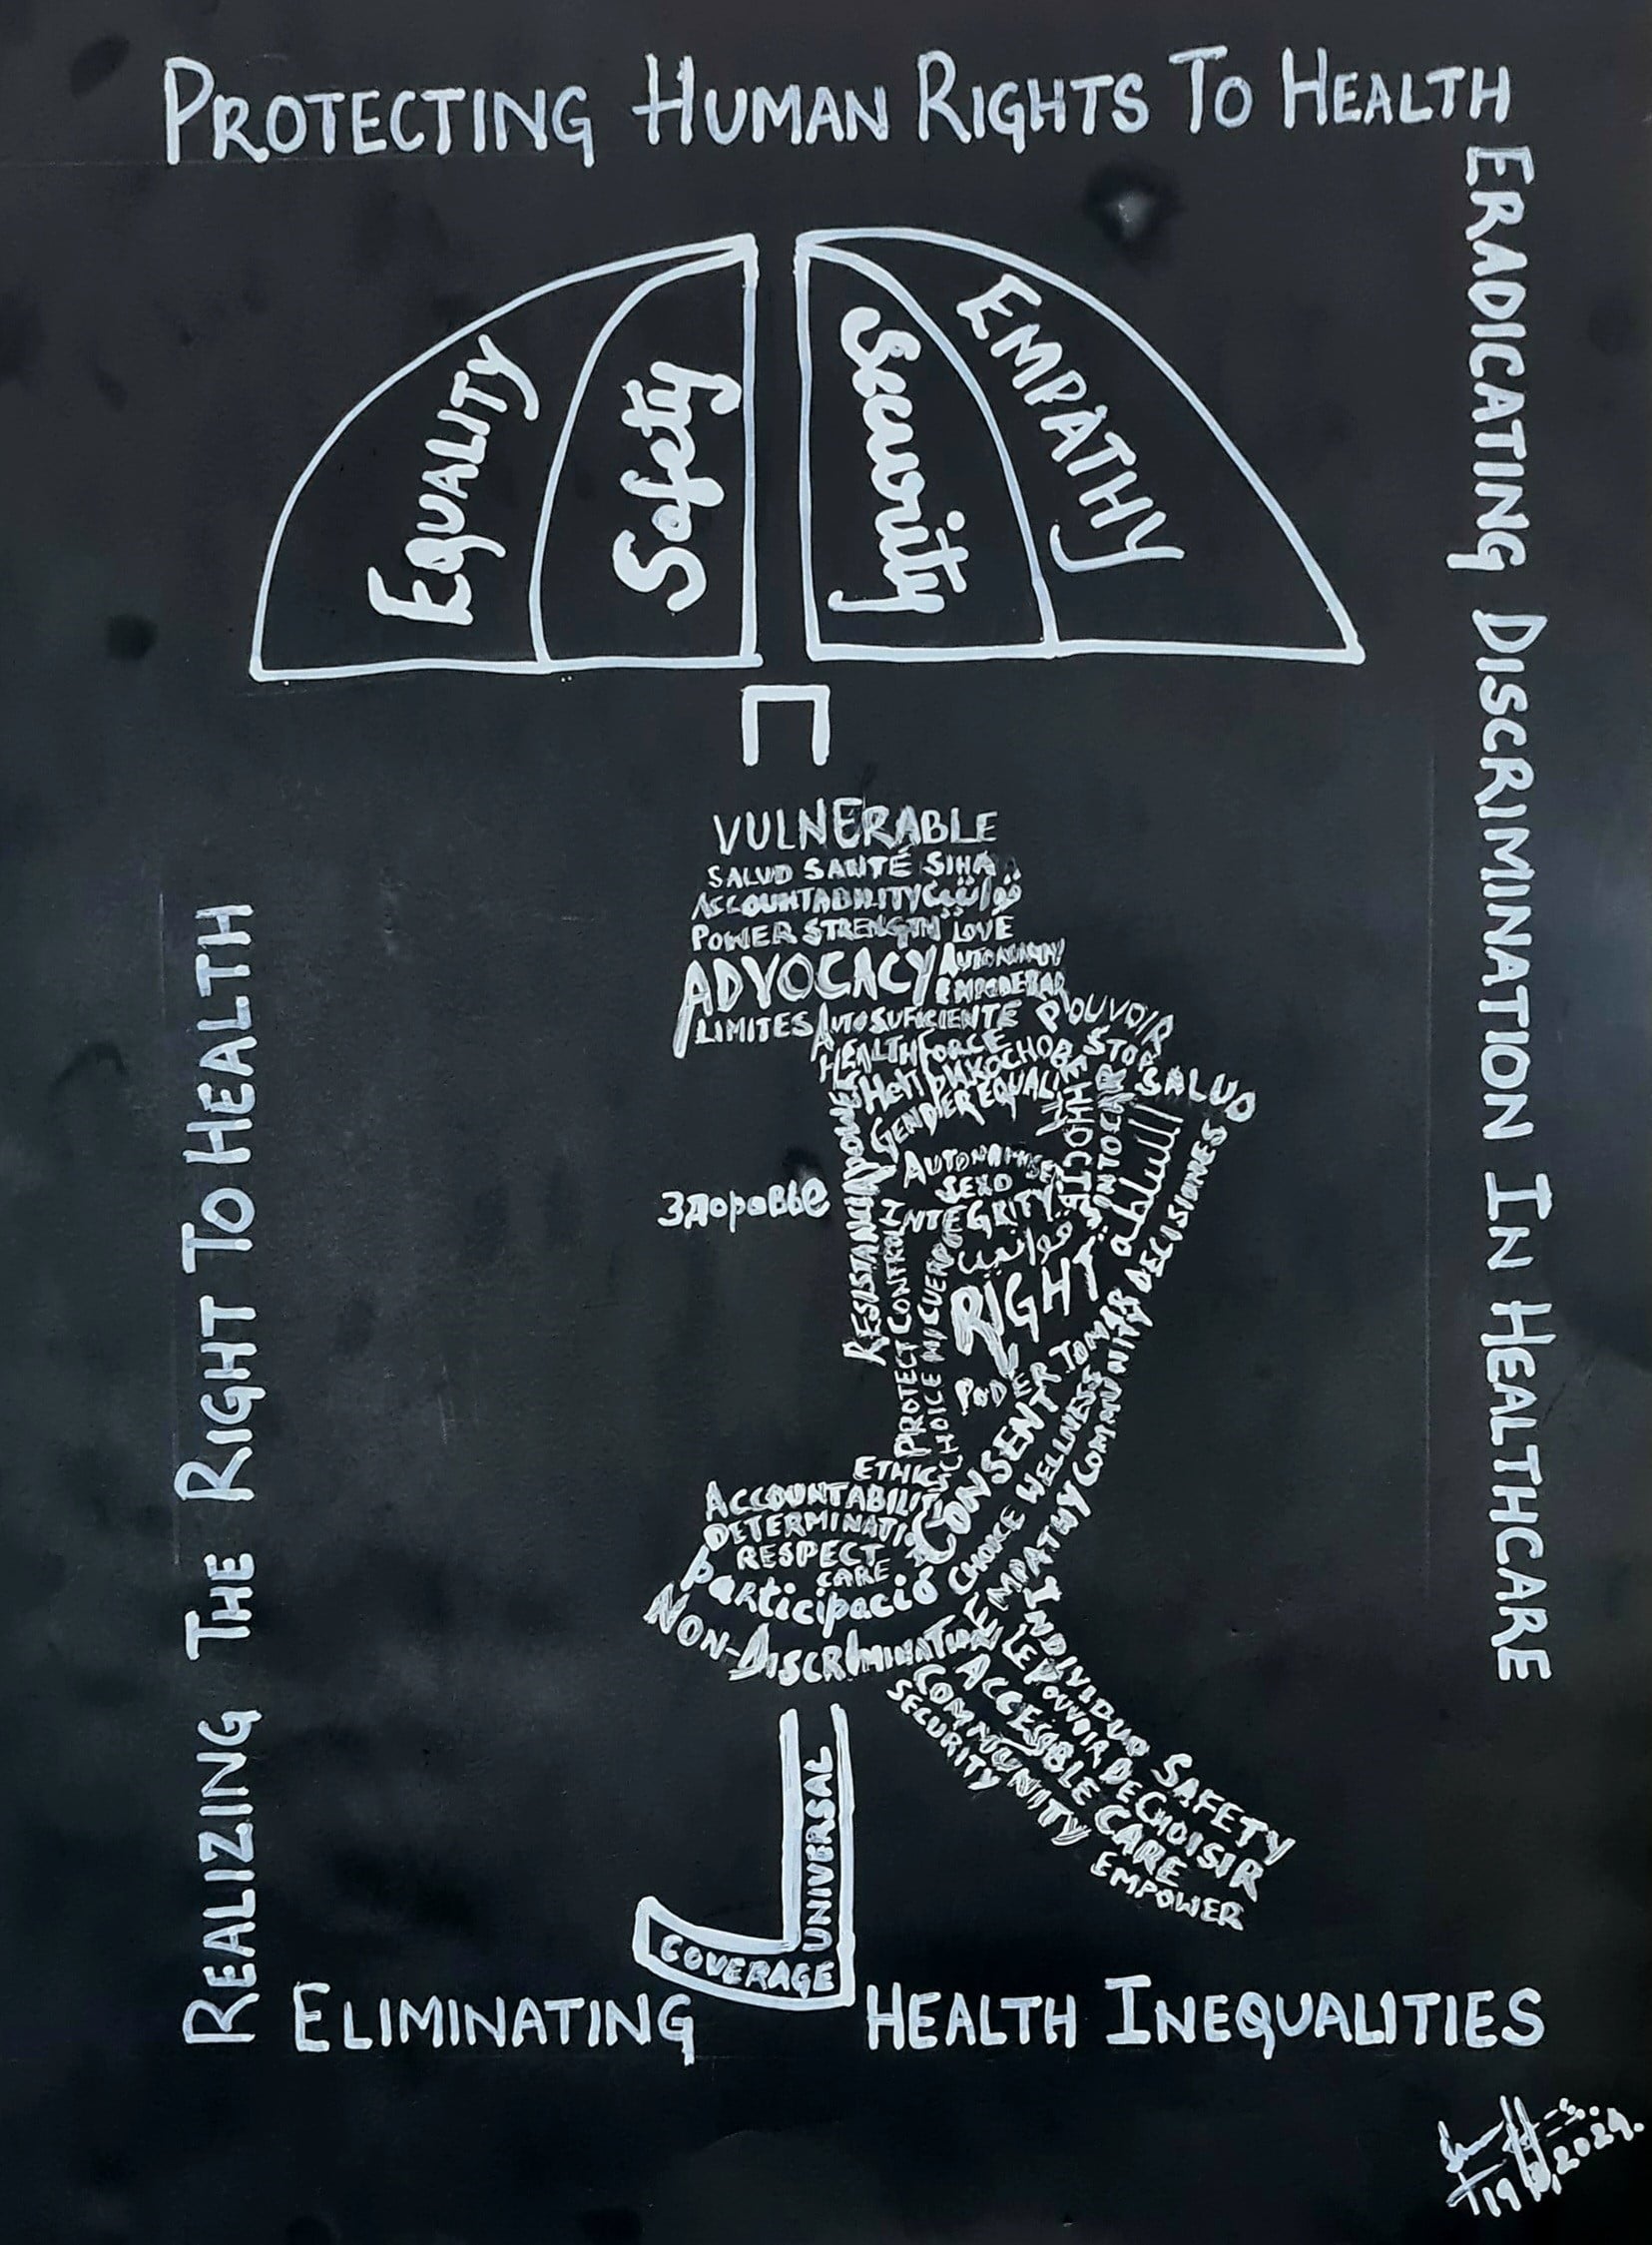 PROTECTING HUMAN RIGHTS TO HEALTH
ERADICATING DISCRIMINATION IN HEALTHCARE
EQUALITY
Safety
Security
EMPATHY
VULNERABLE
SALUD SANTÉ SIHA
ACCOUNTABILITY
POWER STRENGTH LOVE
ADVOCACY AUTONOMY
LIMITES AUTOSUFICIENTE POUVOIR
HEALTH FORCE
STOP
SALUD
GENDER EQUALITY
السلطة
DECISIONES
SEXO
INTEGRITY
здоровье
قوانين
RESISTANCIA
CONTROL
PROTECT
CHOICE MI CUERPO
RIGHT
CONSENT
TOMAR
CHOICE WELLNESS
EMPATHY COMMUNITY
ETHICS
ACCOUNTABILITY
RESPECT
CARE
participació
NON-DISCRIMINATION
INDIVIDUO SAFETY
LE POUVOIR DE CHOISIR
ACCESSIBLE CARE
COMMUNITY EMPOWER
SECURITY
UNIVERSAL
COVERAGE
REALIZING THE RIGHT TO HEALTH
ELIMINATING HEALTH INEQUALITIES